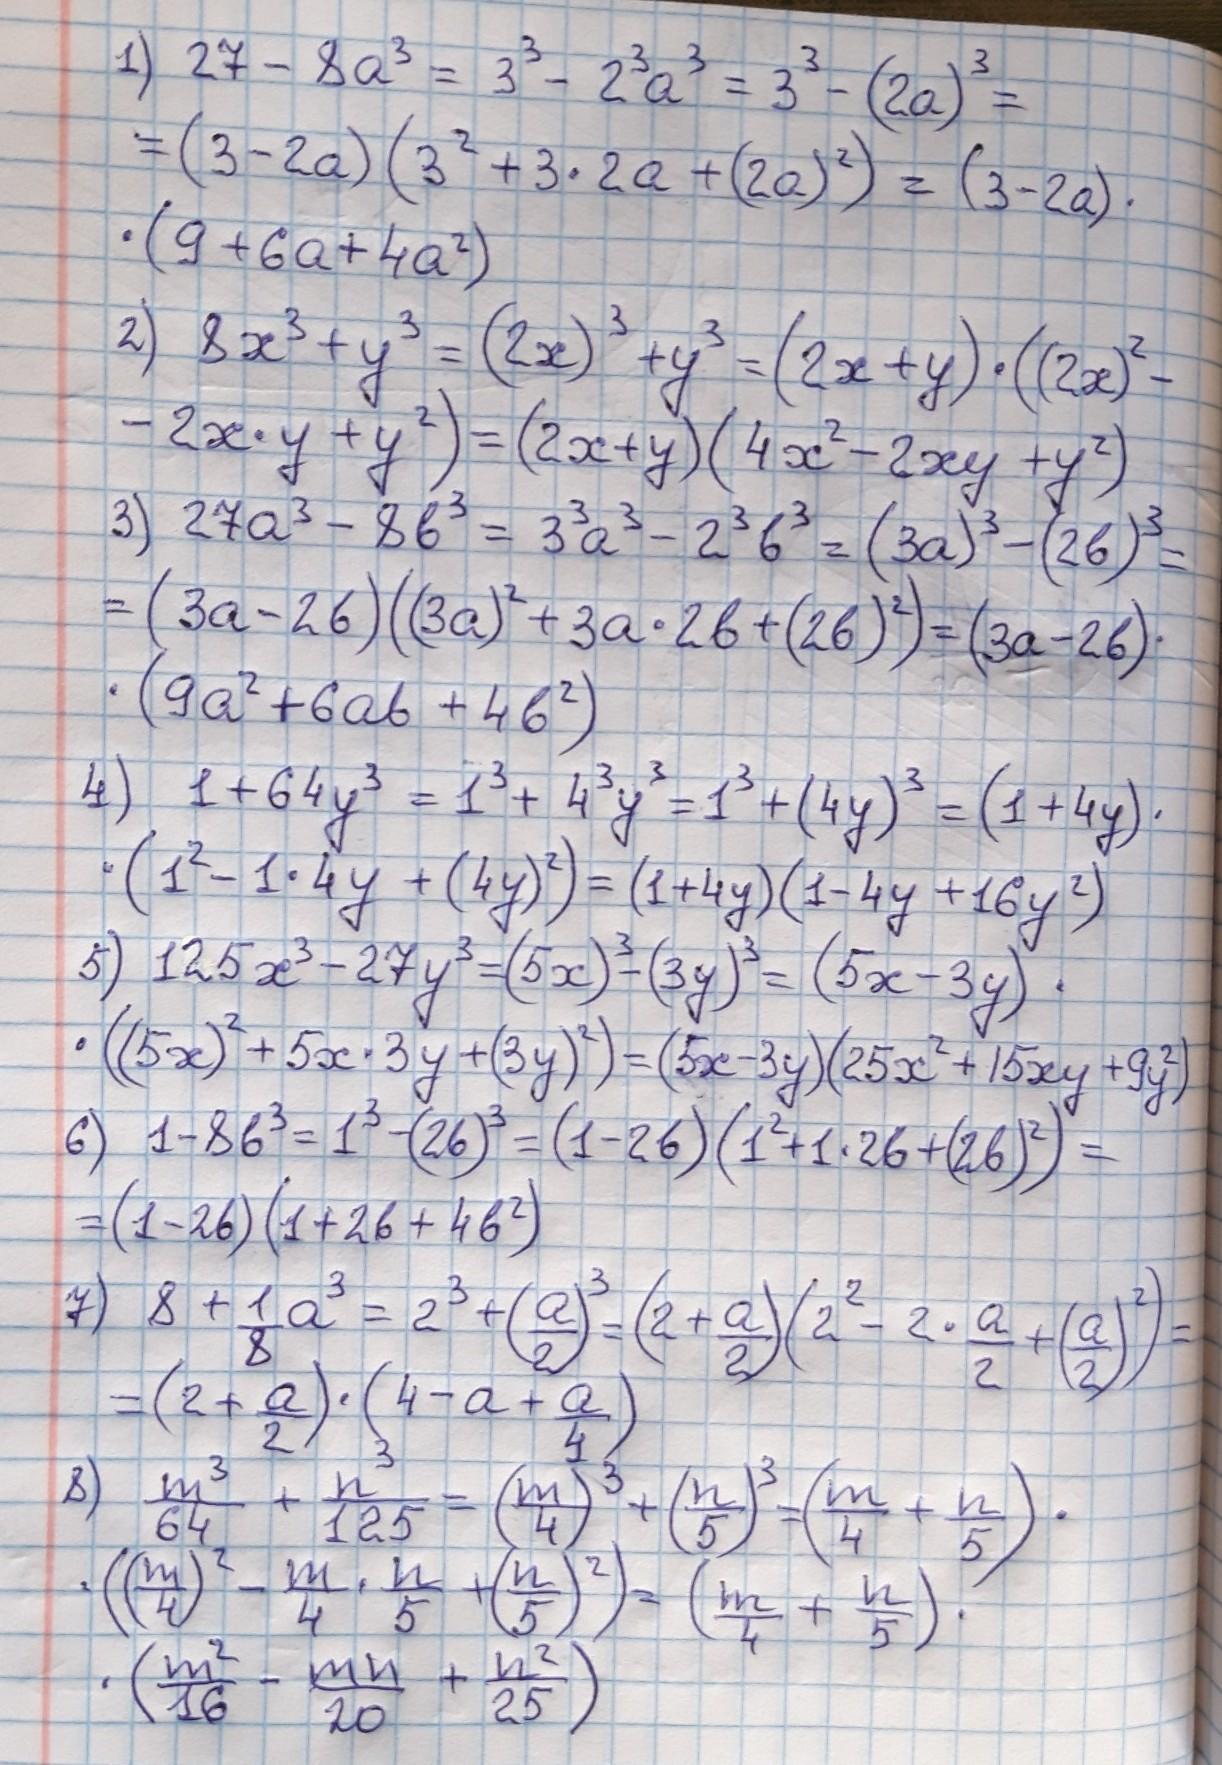 1) 27 - 8a³ = 3³ - 2³a³ = 3³ - (2a)³ =
= (3 - 2a)(3² + 3·2a + (2a)²) = (3 - 2a)·
·(9 + 6a + 4a²)
2) 8x³ + y³ = (2x)³ + y³ = (2x + y)·((2x)² -
- 2x·y + y²) = (2x + y)(4x² - 2xy + y²)
3) 27a³ - 8в³ = 3³a³ - 2³в³ = (3a)³ - (2в)³ =
= (3a - 2в)((3a)² + 3a·2в + (2в)²) = (3a - 2в)·
·(9a² + 6aв + 4в²)
4) 1 + 64y³ = 1³ + 4³y³ = 1³ + (4y)³ = (1 + 4y)·
·(1² - 1·4y + (4y)²) = (1 + 4y)(1 - 4y + 16y²)
5) 125x³ - 27y³ = (5x)³ - (3y)³ = (5x - 3y)·
·((5x)² + 5x·3y + (3y)²) = (5x - 3y)(25x² + 15xy + 9y²)
6) 1 - 8в³ = 1³ - (2в)³ = (1 - 2в)(1² + 1·2в + (2в)²) =
= (1 - 2в)(1 + 2в + 4в²)
7) 8 + 1/8 a³ = 2³ + (a/2)³ = (2 + a/2)(2² - 2·a/2 + (a/2)²) =
= (2 + a/2)·(4 - a + a/4)
8) m³/64 + n³/125 = (m/4)³ + (n/5)³ = (m/4 + n/5)·
·((m/4)² - m/4·n/5 + (n/5)²) = (m/4 + n/5)·
·(m²/16 - mn/20 + n²/25)